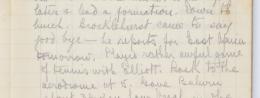 later & had a formation. Down to
lunch. Brocklehurst came to say
good bye — he reports for East Africa
tomorrow. Played rather awful game
of tennis with Elliott. Back to the
aerodrome at 5. Gone